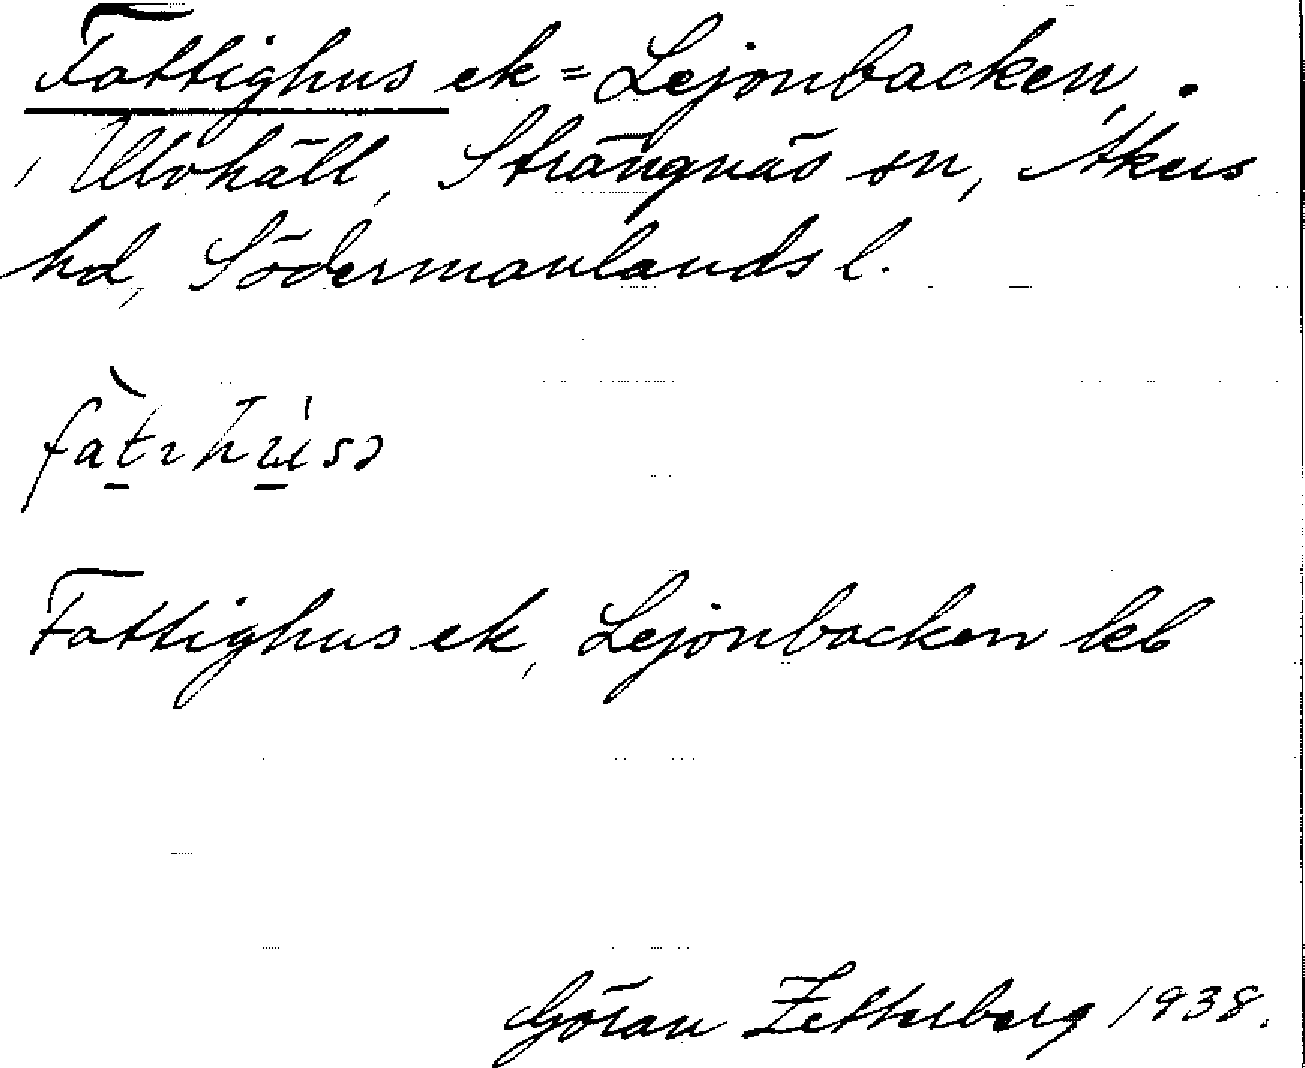 Fattighus ek = Lejonbacken.
i Ulvhäll, Strängnäs sn, Åkers
hd, Södermanlands l.
fàtıhu̇sə
Fattighus ek, Lejonbacken leb
Göran Zetterberg 1938.